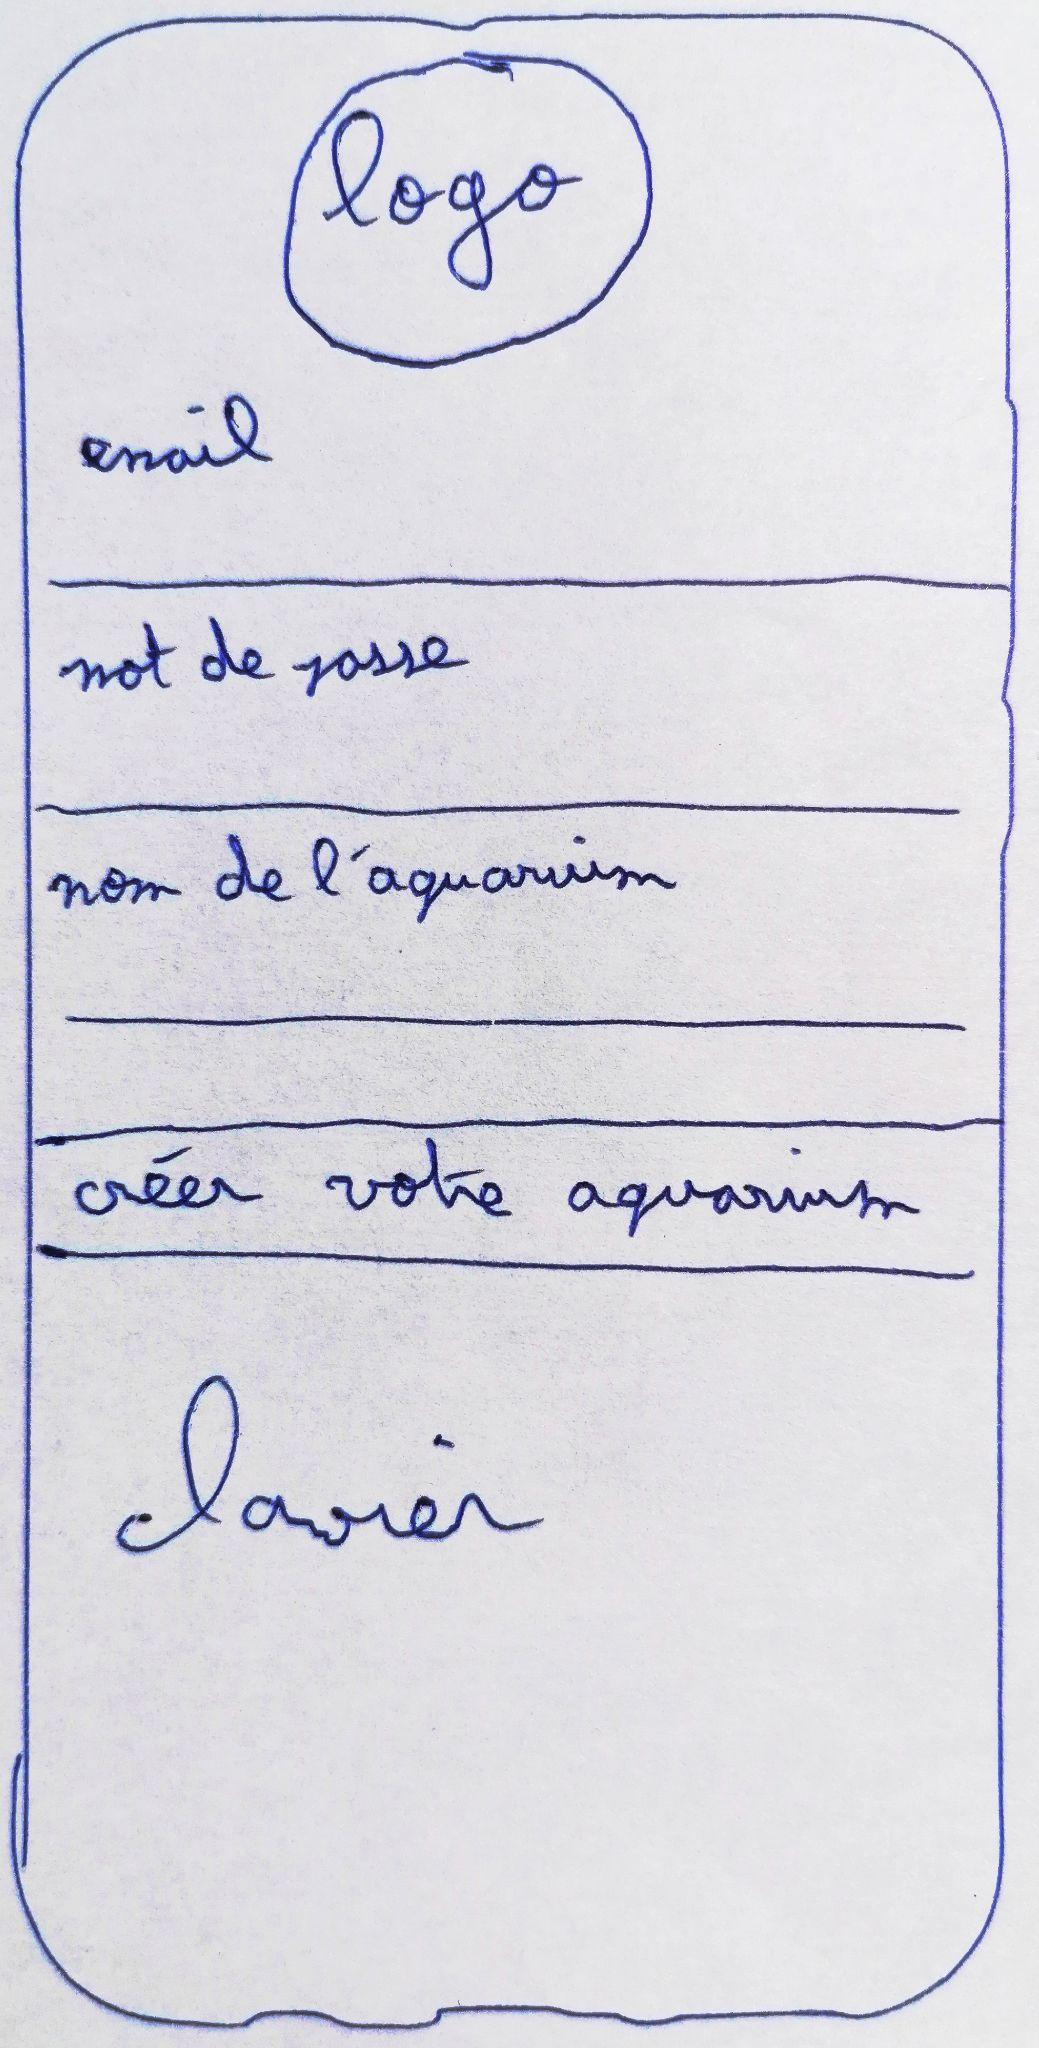 logo
email
mot de passe
nom de l'aquarium
créer votre aquarium
clavier